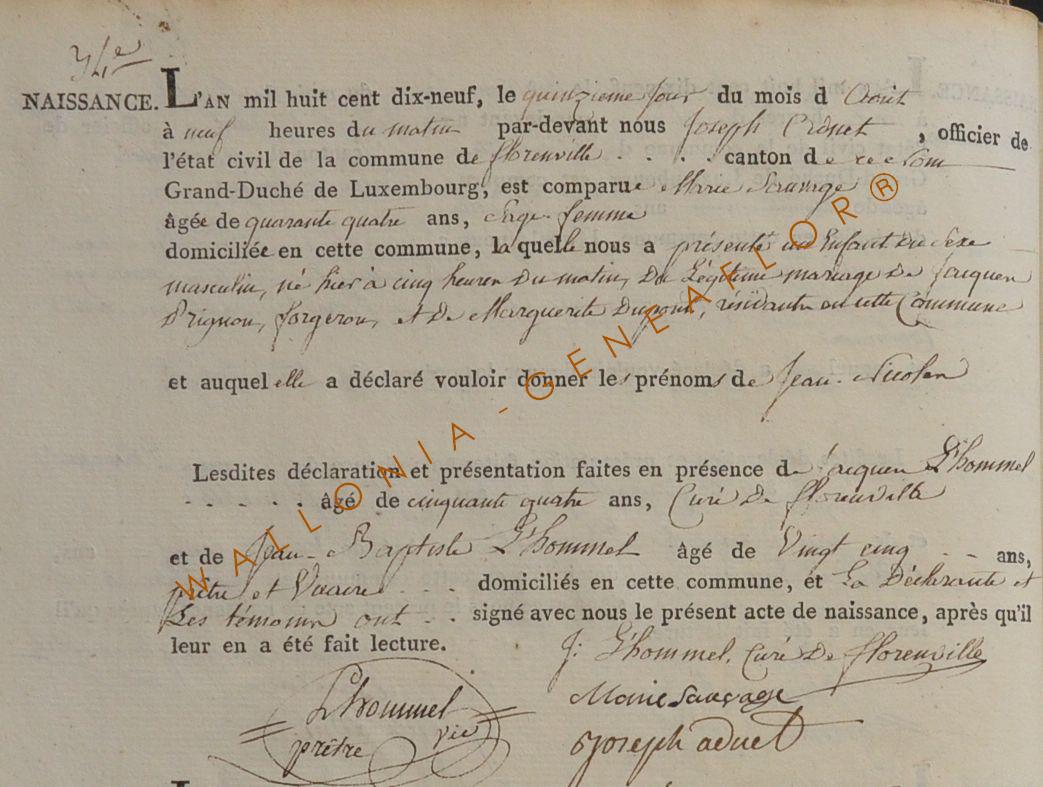 34e
NAISSANCE. L'AN mil huit cent dix-neuf, le quinzieme jour du mois d'Aout
à neuf heures du matin par-devant nous Joseph Aduet, officier de
l'état civil de la commune de florenville . . . . canton de
Grand-Duché de Luxembourg, est comparue Marie Sauvage
âgée de quarante quatre ans, Sage-femme
domiciliée en cette commune, laquelle nous a présenté un Enfant du Sexe
masculin, né hier à cinq heures du matin, du Légitime mariage de Jacques
Prignon, forgeron, et de Marguerite Dupont, résidants en cette Commune
et auquel elle a déclaré vouloir donner les prénoms de Jean-Nicolas
Lesdites déclaration et présentation faites en présence de Jacques L'hommel
- - - - - âgé de cinquante quatre ans, Curé de florenville
et de Jean-Baptiste L'hommel âgé de Vingt cinq - - ans,
prêtre et Vicaire . . . . domiciliés en cette commune, et La Déclarante et
Les témoins ont - - signé avec nous le présent acte de naissance, après qu'il
leur en a été fait lecture.
J: L'hommel, Curé de florenville
Lhommel
prêtre vic
Marie Sauvage
Joseph aduet
WALLONIA-GENEAFLOR®